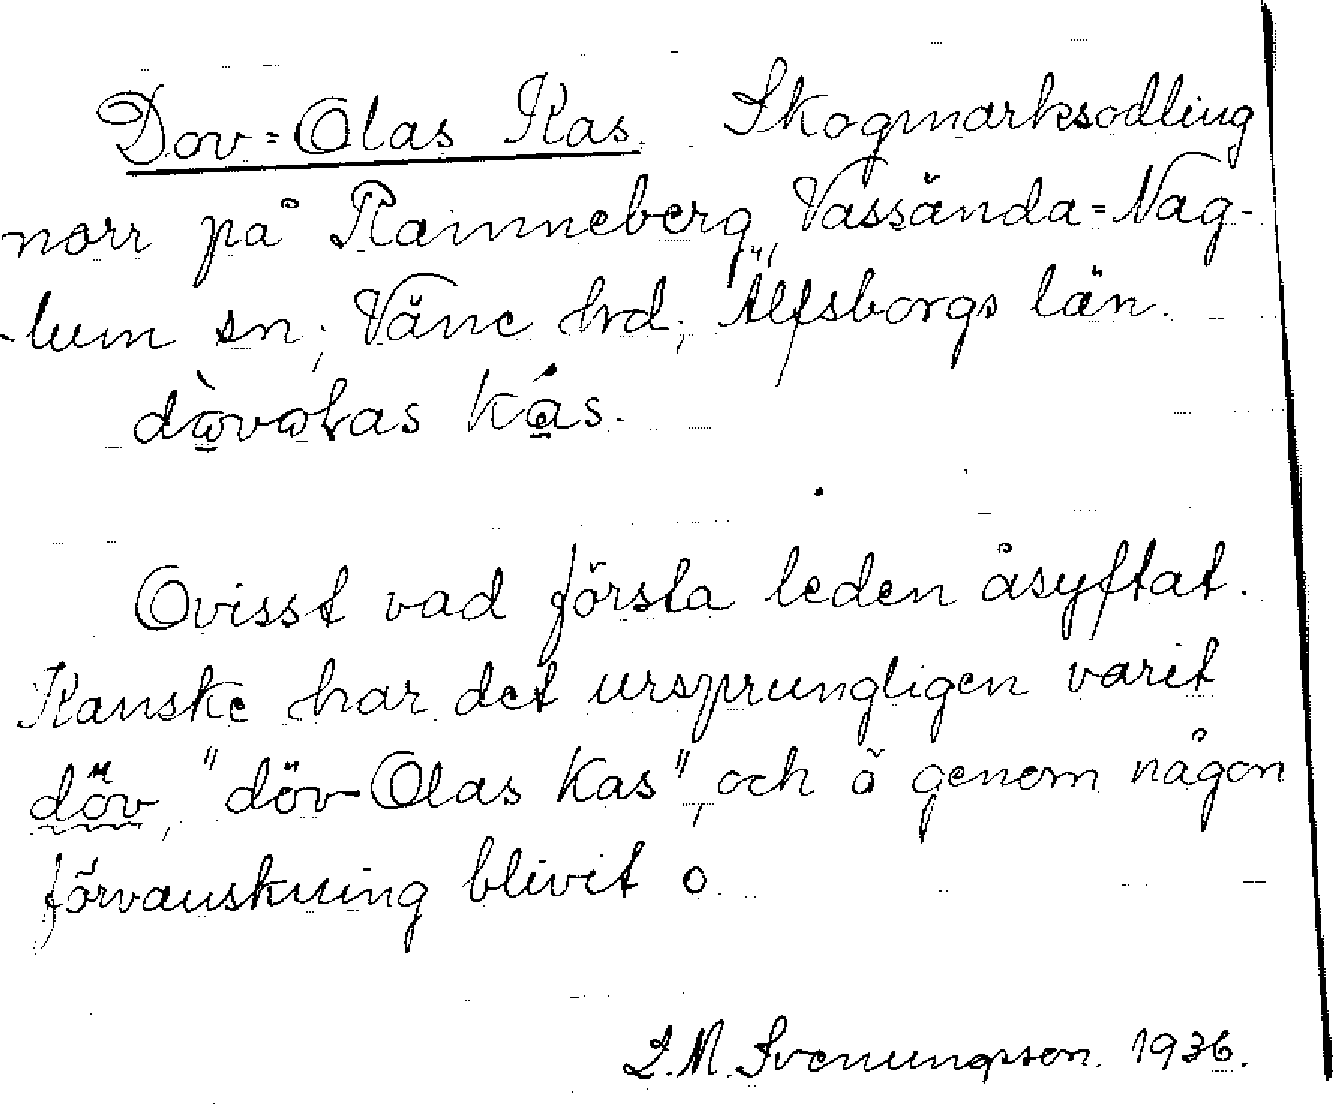 Dov-Olas Kas. Skogmarksodling
norr på Ramneberg, Vassända-Nag-
lum sn; Väne hrd; Älfsborgs län.
dòvolas kás.
Ovisst vad första leden åsyftat.
Kanske har det ursprungligen varit
döv, "döv-Olas kas", och ö genom någon
förvanskning blivit o.
L.M. Svenungsson. 1936.